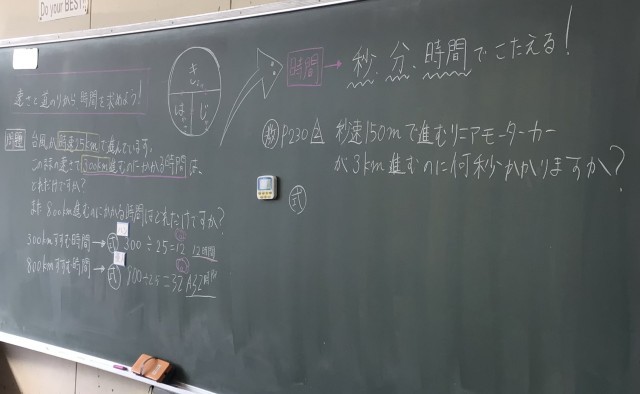 Do your BEST!!
速さと道のりから時間を求めよう!
き
は
じ
時間 → 秒、分、時間でこたえる!
問題 台風が時速25kmで進んでいます。
この速さで300km進むのにかかる時間は、
どれだけですか?
また800km進むのにかかる時間はどれだけですか?
300kmすすむ時間→式 300÷25=12 12時間
800kmすすむ時間→式 800÷25=32 A.32時間
教P230 2 秒速150mで進むリニアモーターカー
が3km進むのに何秒かかりますか?
式